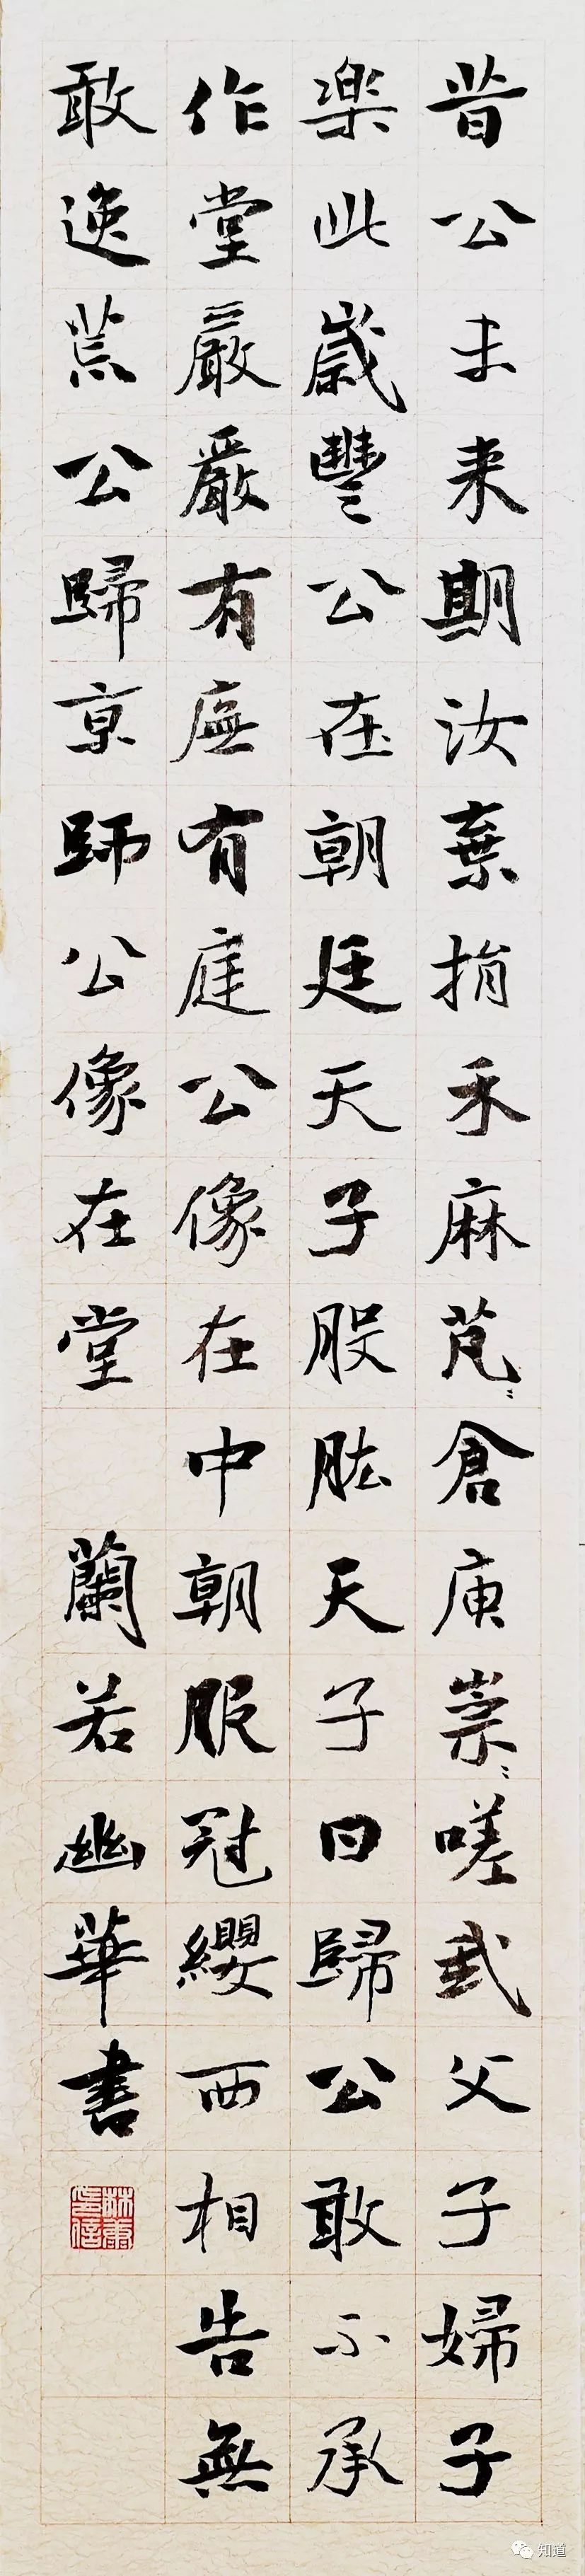 昔公未来期汝棄捐禾麻芃〻倉庾崇〻嗟我父子婦子
楽此歲豐公在朝廷天子股肱天子曰歸公敢不承
作堂嚴嚴有廡有庭公像在中朝服冠纓西相告無
敢逸荒公歸京師公像在堂 蘭若幽華書
知道